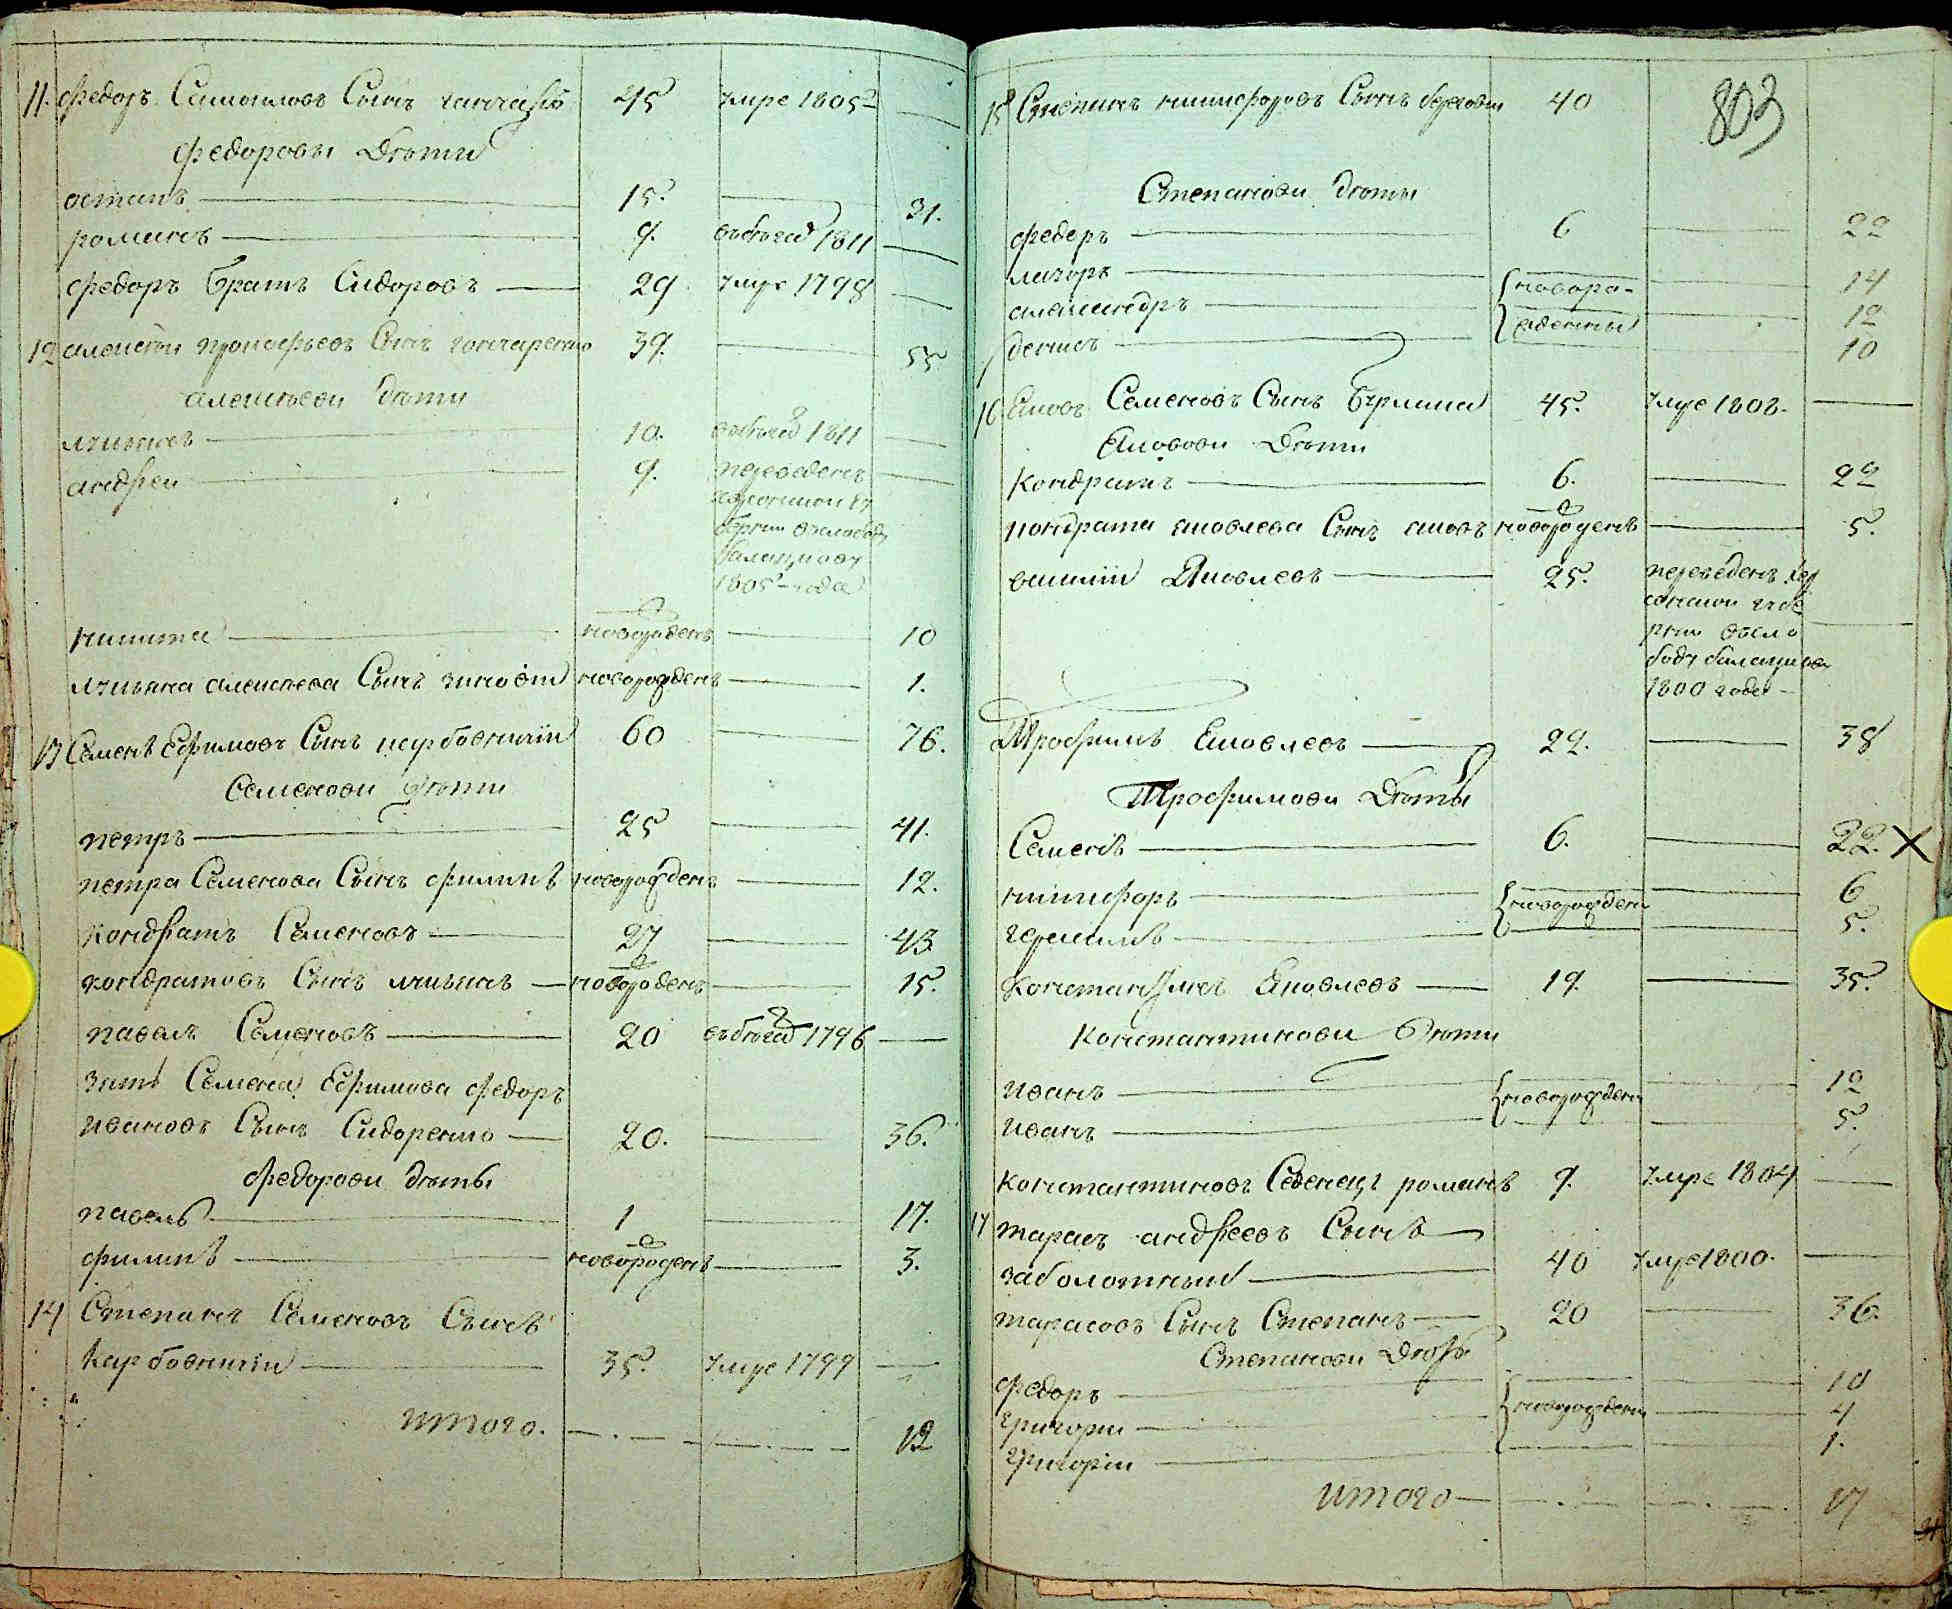 11. Федоръ Самоиловъ Сынъ 45 умре 1805г
Федоровы Дѣти
остапъ 15. 31.
романъ 9. въбѣгах 1811
федоръ братъ Сидоровъ 29 умре 1798
12 алексѣи прокофьевъ Сынъ гончаренко 39. 55
алексѣеви дѣти
лукьянъ 10. въбѣгах 1811
андреи 9. переведенъ
херсонской гу
берни въслободу
1805г года
никита новорожденъ 10
лукьяна алексѣева Сынъ зиновіи новорожденъ 1.
13 Семенъ Ефимовъ Сынъ карбовничіи 60 76.
Семенови дѣти
петръ 25 41.
петра Семенова Сынъ филипъ новорожденъ 12.
Кондратъ Семеновъ 27 43
кондратовъ Сынъ лукьянъ новорожденъ 15.
павелъ Семеновъ 20 въбѣгах 1796
зять Семена Ефимова федоръ
ивановъ Сынъ Сидоренко 20. 36.
Федорови дѣты
павелъ 1 17.
филипъ новорожденъ 3.
14 Степанъ Семеновъ Сынъ
Карбовничіи 35. умре 1799
итого. 12
803
15 Степанъ никифоровъ Сынъ 40
Степанови дѣты
федоръ 6 22
григорь новоро- 14
александръ жденны 12
денисъ 10
16 Яковъ Семеновъ Сынъ бурлака 45. умре 1808.
Яковови Дѣти
Кондратъ 6. 22
кондрата яковлева Сынъ яковъ новорожденъ 5.
василіи Яковлевъ 25. переведенъ хер
сонскои губе
рни въсло
боду
1800 года
Трофимъ Яковлевъ 22. 38
Трофимови Дѣты
Семенъ 6. 22. X
никифоръ новорожден 6
герасимъ 5.
Константинъ Яковлевъ 19. 35.
Константинови Дѣти
иванъ новорожден 12
иванъ 5.
Константиновъ романъ 9. умре 1804
17 тарасъ андреевъ Сынъ
заболотный 40 умре 1800.
тарасовъ Сынъ Степанъ 20 36.
Степанови Дѣты
федоръ 10
григории новорожден 4
григоріи 1.
итого 17